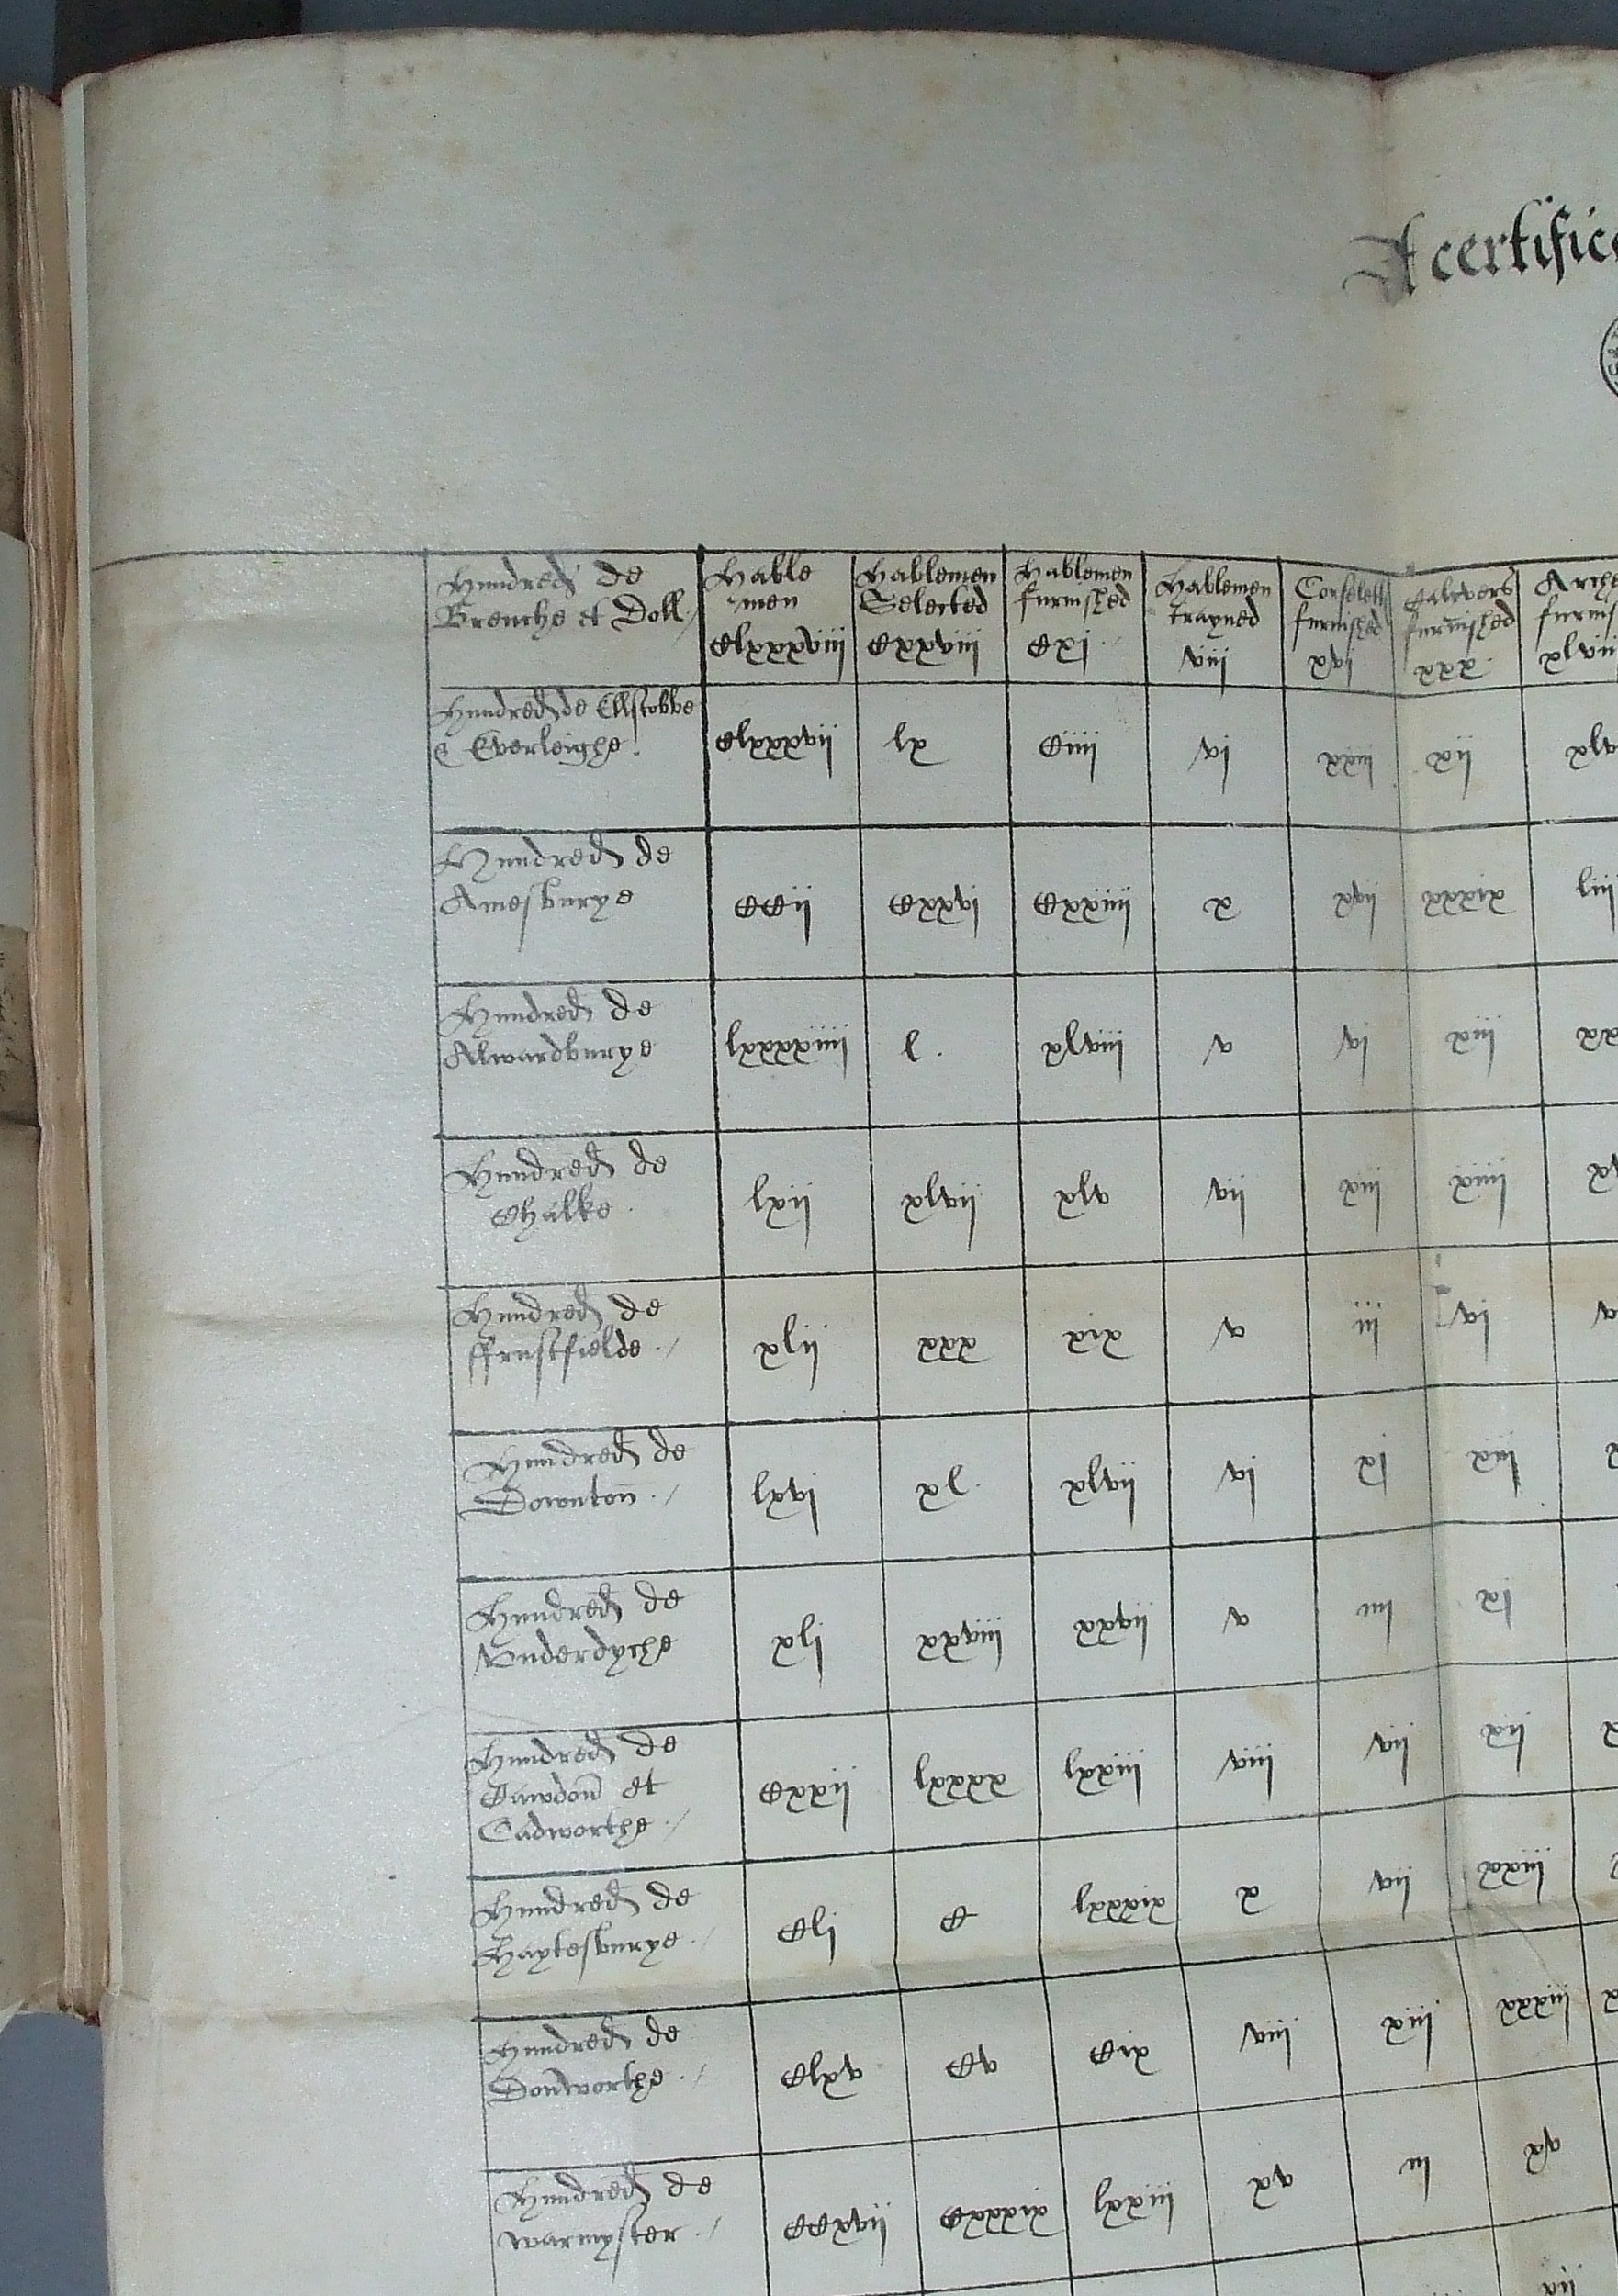 A certific
Hundred de
Brenche et Doll
Hable
men
Clxxxviij
Hablemen
Selected
Cxxviij
Hablemen
furnished
Cxj
Hablemen
trayned
viij
Corselett
furnished
xvj
Calivers
furnished
xxx
Arche
furnis
xlvii
Hundred de Ellstobbe
& Everleighe
Clxxxvij
lx
Ciiij
vj
xxiij
xij
xlv
Hundred de
Amesburye
CCij
Cxxvj
Cxxiiij
x
xvij
xxxix
liij
Hundred de
Alwardburye
lxxxxiiij
l
xlviij
v
vj
xiij
xxx
Hundred de
Chalke
lxij
xlvij
xlv
vij
xiij
xiiij
Hundred de
ffrustfielde
xlij
xxx
xix
v
iij
vj
v
Hundred de
Downton
lxvj
xl
xlvij
vj
xj
xiij
Hundred de
Underdyche
xlj
xxviij
xxvij
v
iiij
xj
Hundred de
Cawdon et
Cadworthe
Cxxij
lxxxx
lxxiiij
viij
vij
xij
Hundred de
Haytesburye
Clj
C
lxxxix
x
vij
xxiij
Hundred de
Donworthe
Clxv
Cv
Cix
viij
xiij
xxxiiij
Hundred de
warmyster
CCxvij
Cxxxix
lxxiiij
xv
iij
xv